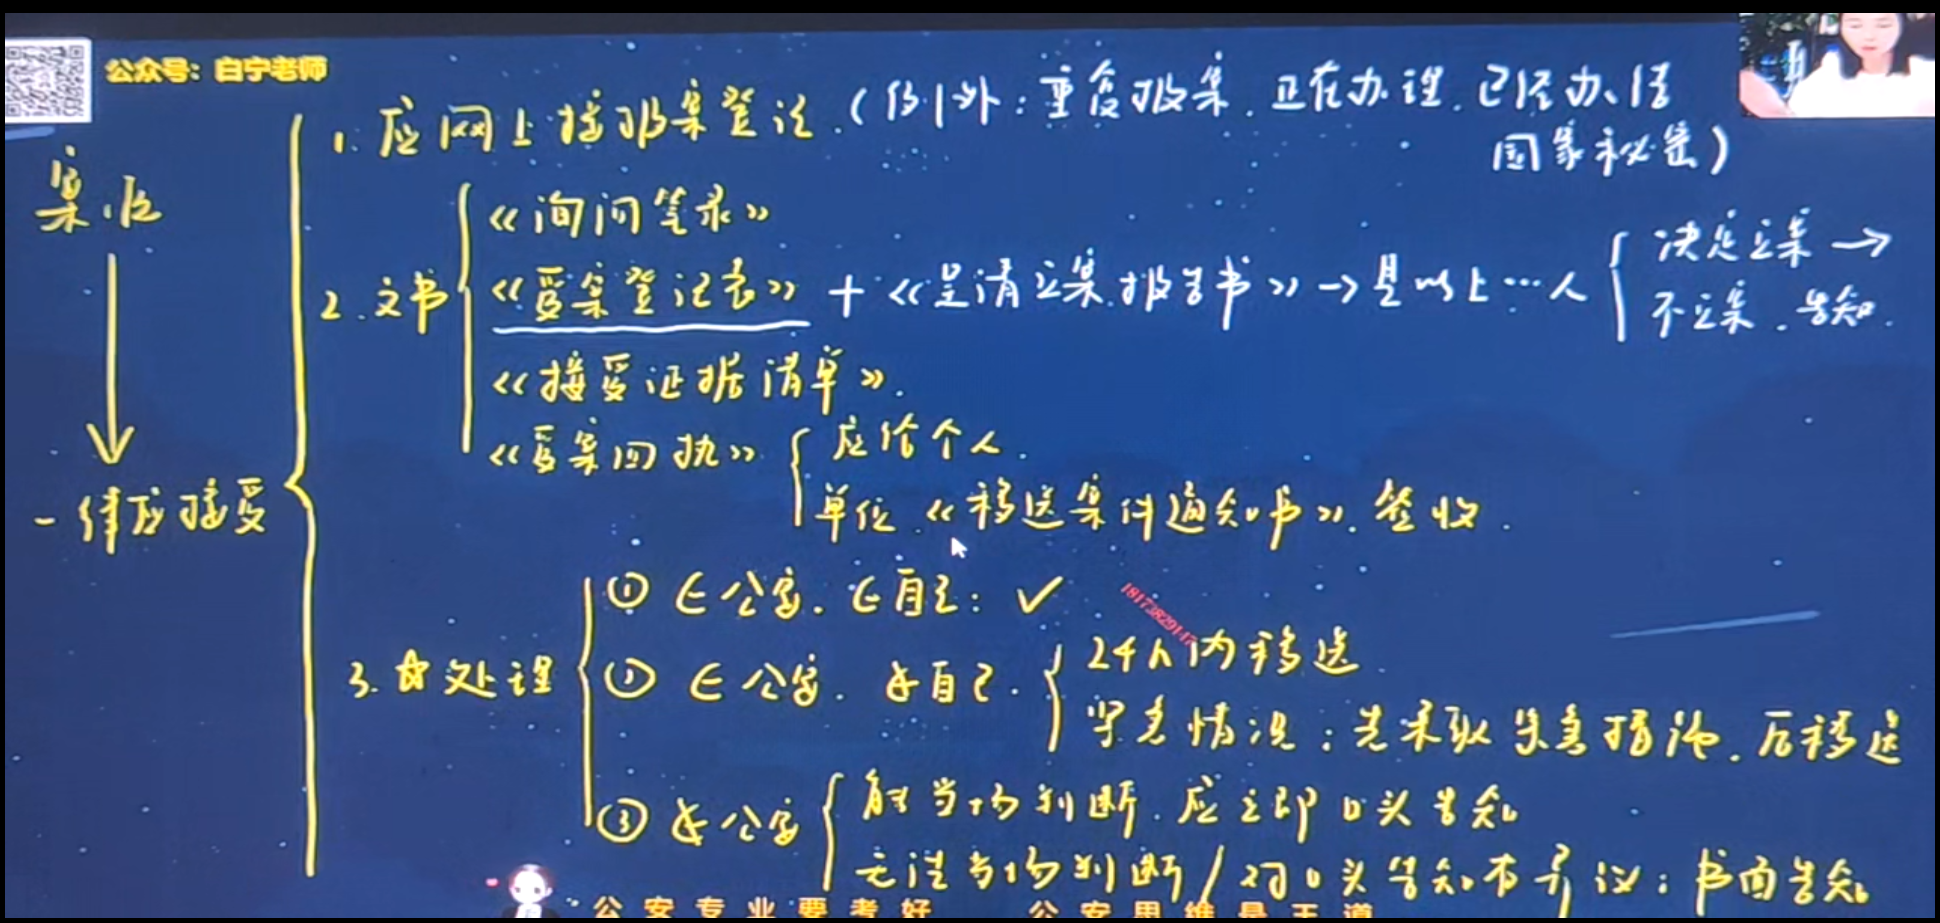 公众号：白宁老师
1. 应网上接报案登记.（例外：重复报案.正在办理.已经办结
国家秘密）
案.
一律应接受
2.文书
《询问笔录》
《受案登记表》+《呈请立案.报告书》→县以上…人
决定立案→
不立案.告知.
《接受证据清单》.
《受案回执》
应给个人.
单位《移送案件通知书》.签收.
3.☆处理
① ∈公安.∈自己：✓
② ∈公安.∉自己.
24h内移送.
紧急情况：先采取紧急措施.后移送
③ ∉公安
能当场判断.应立即口头告知
无法当场判断/对口头告知有异议：书面告知
18173829147
公安专业要考好 公安思维是王道